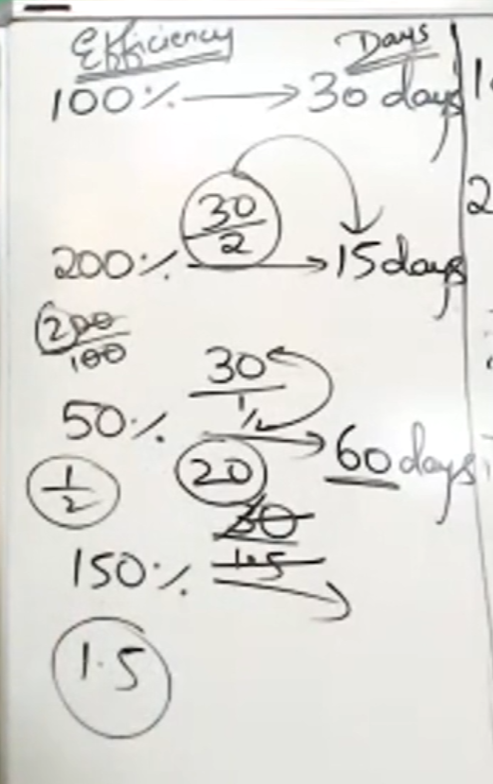 Efficiency Days
100% → 30 days
30/2
200% → 15 days
200/100
30/½
50% → 60 days
1/2 20
30/1.5
150% →
1.5